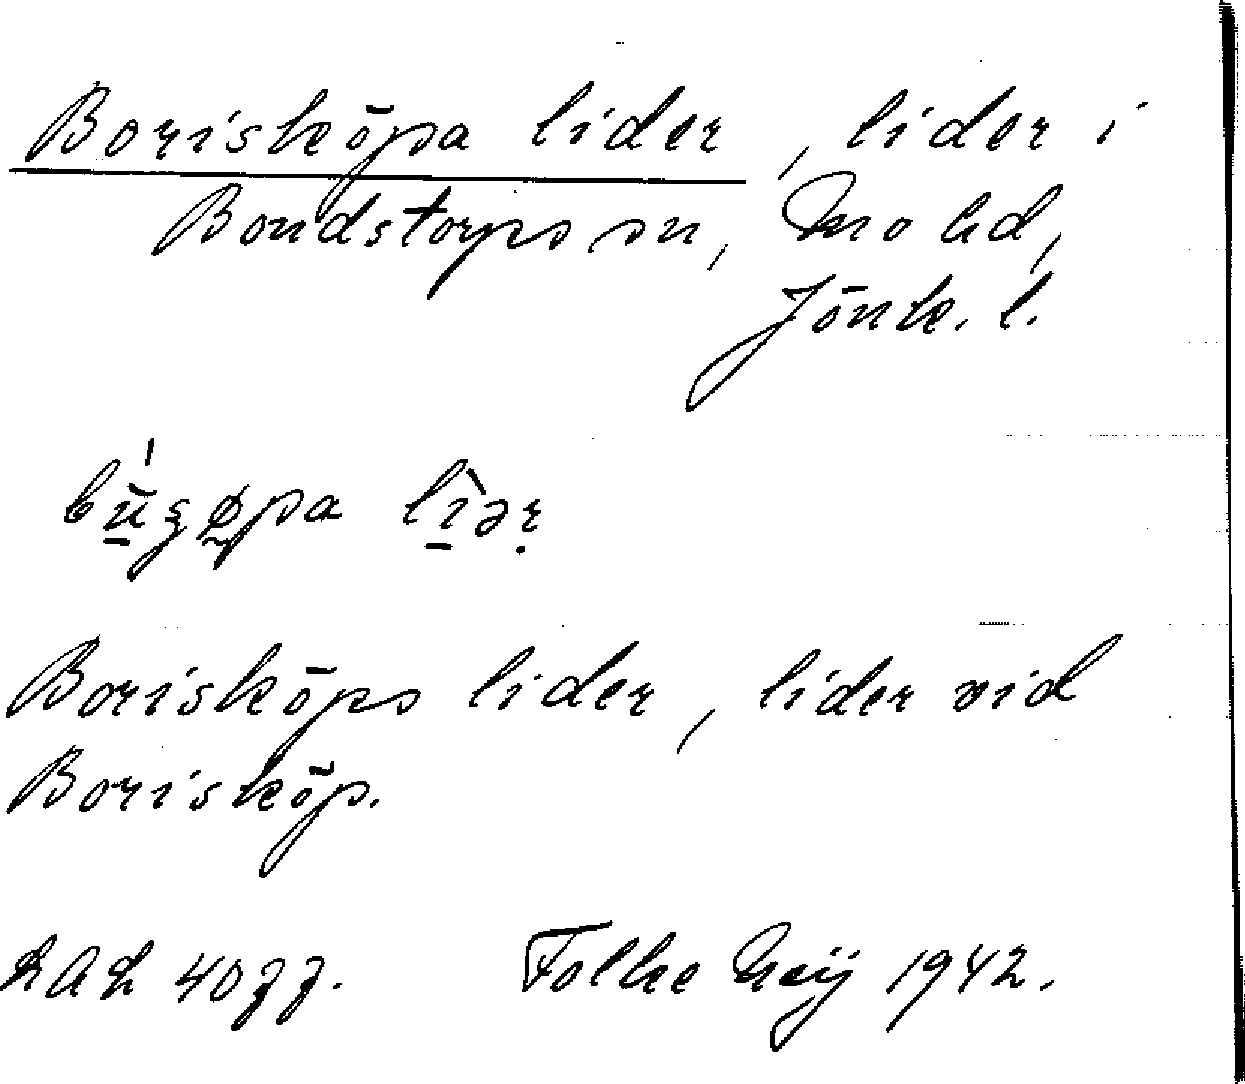 Borisköpa lider, lider i
Bondstorps sn, Mo hd,
Jönk. l.
Borisköps lider, lider vid
Borisköp.
4077. Folke Meij 1942.